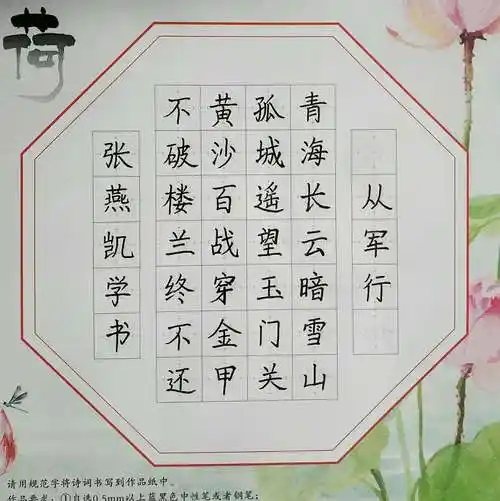 荷
从军行
青海长云暗雪山
孤城遥望玉门关
黄沙百战穿金甲
不破楼兰终不还
张燕凯学书
请用规范字将诗词书写到作品纸中。
作品要求：①自选0.5mm以上蓝黑色中性笔或者钢笔；